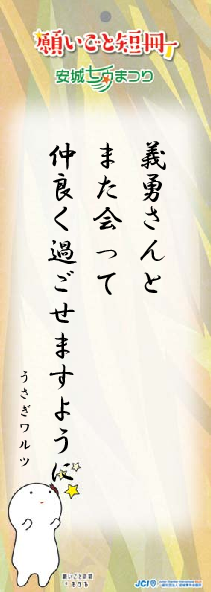 願いごと短冊
安城七夕まつり
義勇さんと
また会って
仲良く過ごせますように
うさぎワルツ
願いごと短冊
JCI